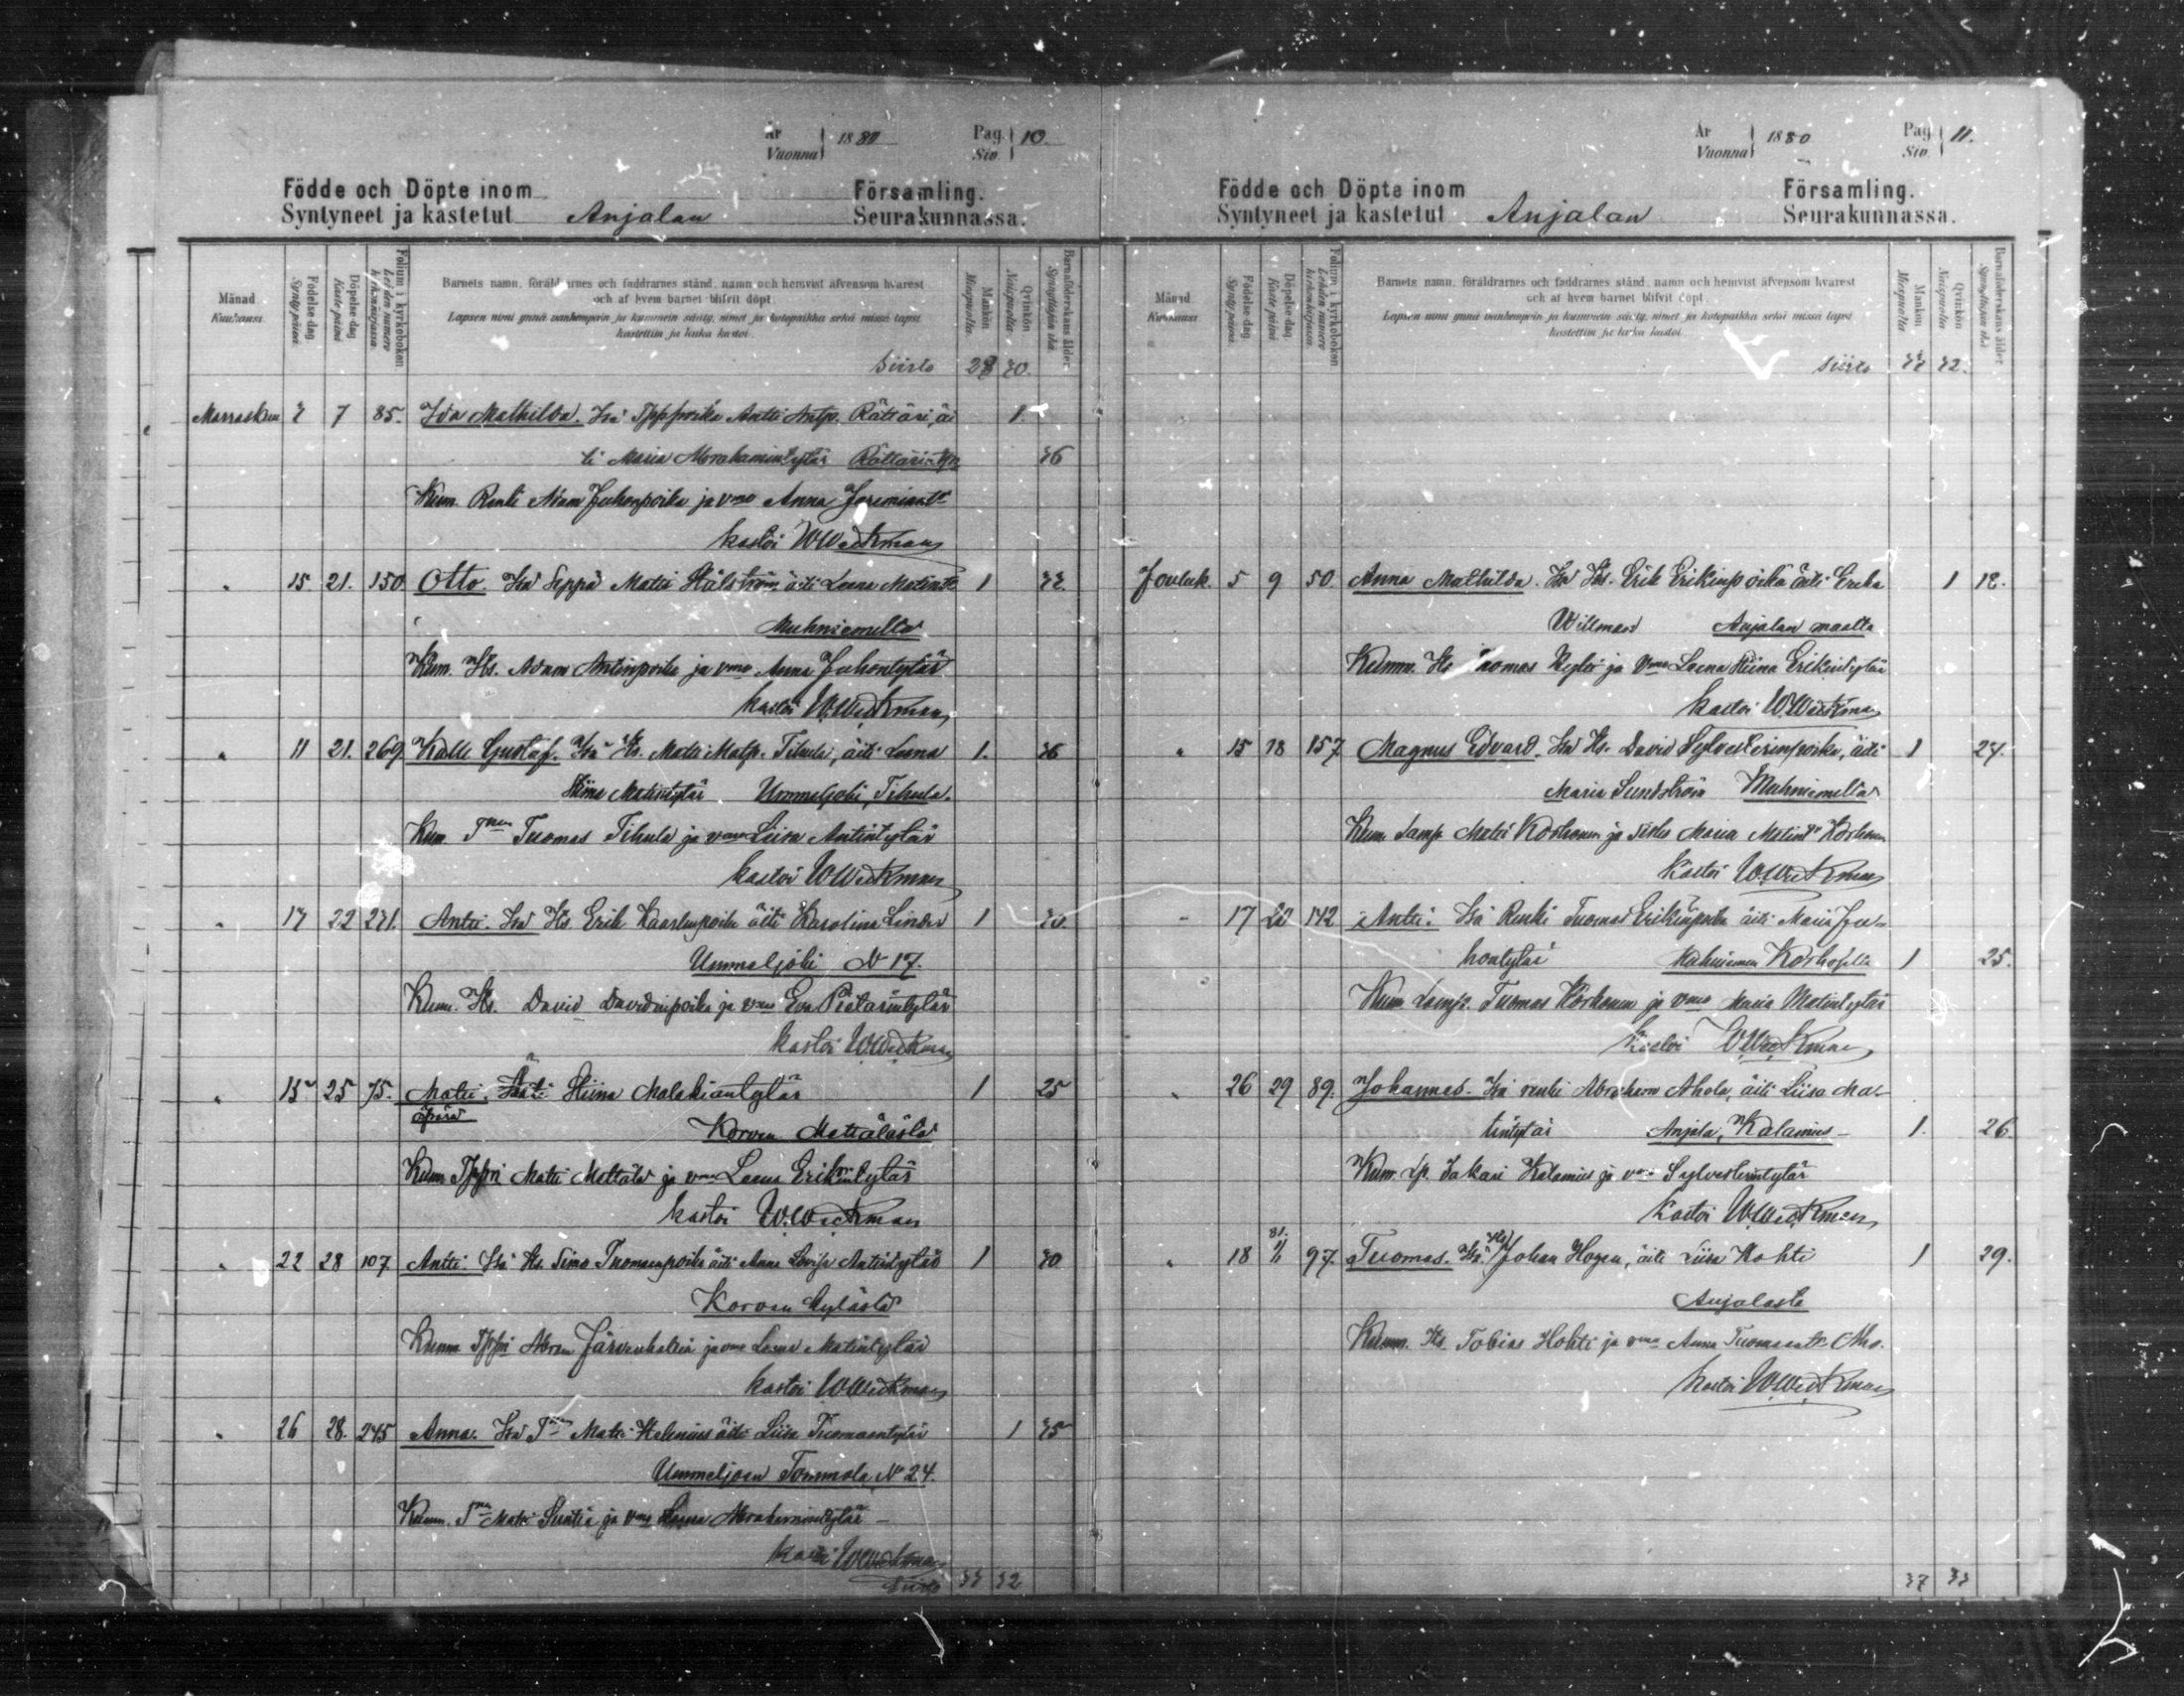 År
Vuonna 1880 Pag. Siv. 10.
Födde och Döpte inom Församling.
Syntyneet ja kastetut Anjalan Seurakunnassa.
Månad Kuukausi.
Födelse-dag Syntypäivä.
Döpelse-dag. Kaste-päivä
Folium i kyrkoboken Lehden numero kirkonkirjassa.
Barnets namn, föräldrarnes och faddrarnes stånd, namn och hemvist äfvensom hvarest
och af hvem barnet blifvit döpt.
Lapsen nimi ynnä vanhempain ja kummein sääty, nimet ja kotopaikka sekä missä lapsi
kastettiin ja kuka kastoi.
Mankön Miespuolia.
Qvinkön Naispuolia
Barnaföderskans ålder Synnyttäjän ikä
Siirto 28 30.
Marraskuu 3 7 85. Ida Mathilda. Isä Antti Antp. Rättäri, äi 1.
ti Maria Abrahamintytär 36
Kum. Renki Adam Juhonpoika ja vmo Anna Jeremiant.
kastoi WWeckman
" 15. 21. 150 Otto. Isä Seppä Matti Stålström, äiti Leena Matint. 1
Muhniemeltä
Kum. Its. Adam Antinpoika ja vmo Anna Juhontytär
kastoi WWeckman
" 11 21. 269. Kalle Gustaf. Isä Its. Matti Matp. Tihula, äiti Leena 1. 36
Stiina Matintytär Ummeljoki, Tihula.
Kum. Tuomas Tihula ja vmo Liisa Antintytär
kastoi WWeckman
" 17 22 271. Antti. Isä Its. Erik Kaarlenpoika äiti Karolina Linder 1
Ummeljoki N 17.
Kum. Its. David Davidinpoika ja vmo Eva Pietarintytär
kastoi WWeckman
" 15 25 75. Matti. Äiti Stiina Malakiantytär 1 25
äpärä
Korven Mettälästä
Kum. Matti Mettälä ja vmo Leena Erikintytär
kastoi W.Weckman
" 22 28 107 Antti. Isä Its. Simo Tuomaanpoika äiti Anna Lovisa Antintytär 1 30
Korven kylästä
Kumm. ja vmo Leena Matintytär
kastoi WWeckman
" 26 28. 245 Anna. Isä Matti Helenius äiti Liisa Tuomaantytär 1 35
Ummeljoen Tommola, N 24.
Kumm. Matti ja vmo Abrahamintytär
kastoi WWeckman
Siirto 33 32
År
Vuonna 1880 Pag. Siv. 11.
Födde och Döpte inom Församling.
Syntyneet ja kastetut Anjalan Seurakunnassa.
Månad Kuukausi.
Födelse-dag Syntypäivä.
Döpelse-dag. Kaste-päivä
Folium i kyrkoboken Lehden numero kirkonkirjassa.
Barnets namn, föräldrarnes och faddrarnes stånd, namn och hemvist äfvensom hvarest
och af hvem barnet blifvit döpt.
Lapsen nimi ynnä vanhempain ja kummein sääty, nimet ja kotopaikka sekä missä lapsi
kastettiin ja kuka kastoi.
Mankön Miespuolia
Qvinkön Naispuolia
Barnaföderskans ålder Synnyttäjän ikä
Siirto 33 32.
Jouluk. 5 9 50. Anna Mathilda. Isä Its. Erik Erikinpoika äiti Erika 1
Willman Anjalan maalta
Kumm. Its. Tuomas ja vmo Leena Stiina Erikintytär
kastoi WWeckman
" 15 18 157 Magnus Edvard. Isä Its. David Sylvesterinpoika, äiti 1 27.
Maria Sundström Muhniemeltä
Kum. Lamp. Matti Korhonen ja Maria Matint. Korhonen
kastoi WWeckman
" 17 22 142 Antti. Isä Renki Tuomas Erikinpoika äiti Maria Ju-
hontytär Muhniemen 1 25.
Kum. Lamp. Tuomas Korhonen ja vmo Maria Matintytär
kastoi WWeckman
" 26 29 89. Johannes. Isä renki Abraham Ahola, äiti Liisa Ma-
tintytär Anjala, Kalamies 1. 26.
Kum. Lp. Sakari Kalamies ja vmo Sylvesterintytär
kastoi WWeckman
" 18 81. 1/1 97. Tuomas. Isä Its. Johan Hogen, äiti Liisa Hohti 1 29.
Anjalasta
Kumm. Its. Tobias Hohti ja vmo Anna Tuomaant. Aho.
kastoi WWeckman
37 33